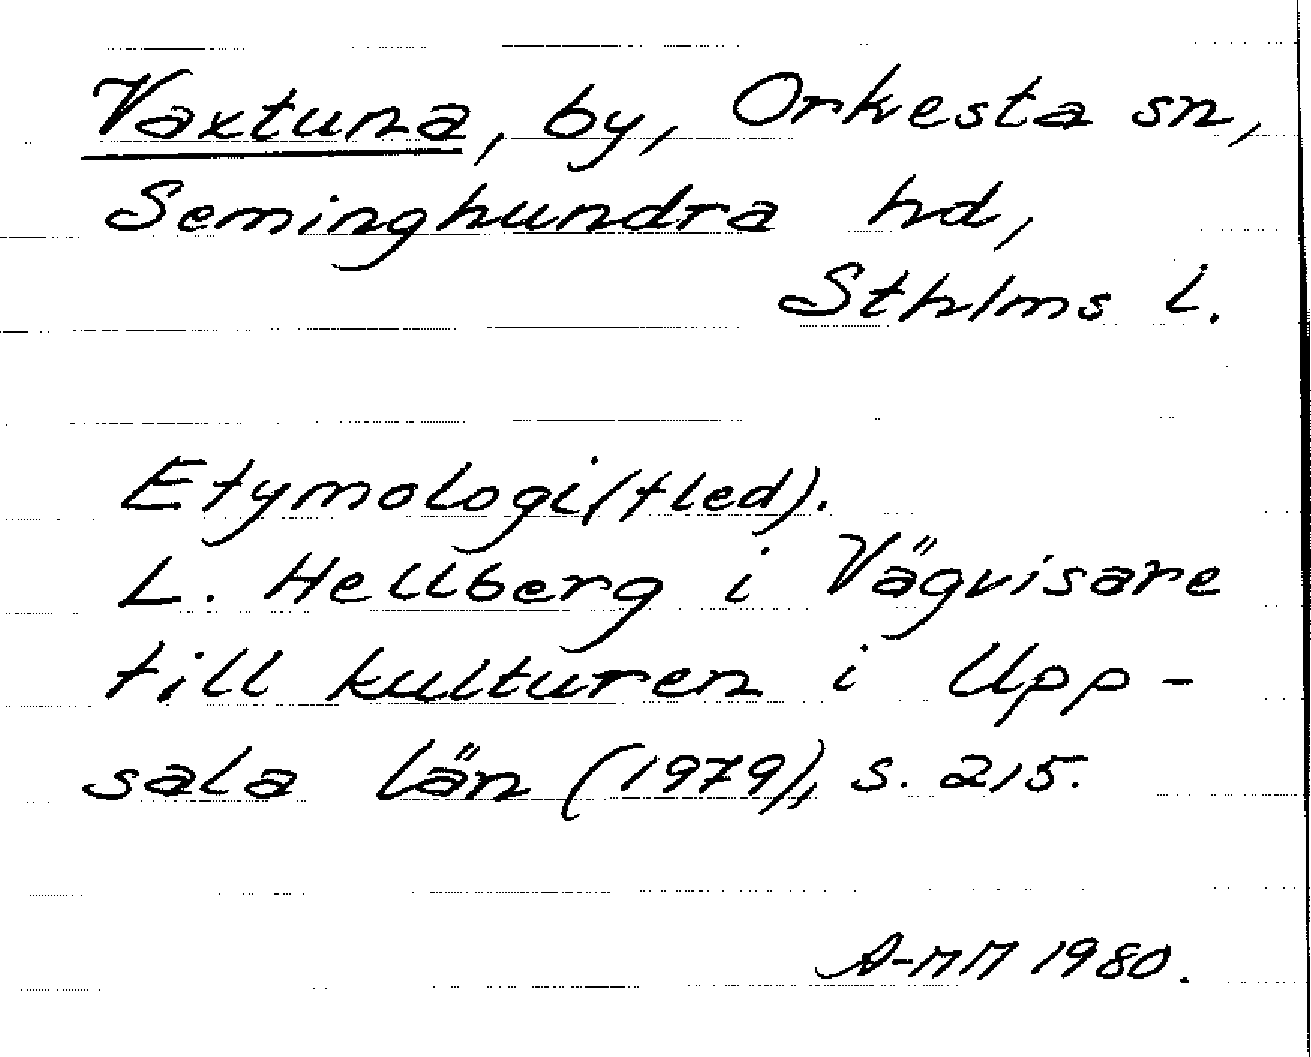 Vaxtuna, by, Orkesta sn,
Seminghundra hd,
Sthlms l.
Etymologi (fled).
L. Hellberg i Vägvisare
till kulturen i Upp-
sala län (1979), s. 215.
A-MM 1980.